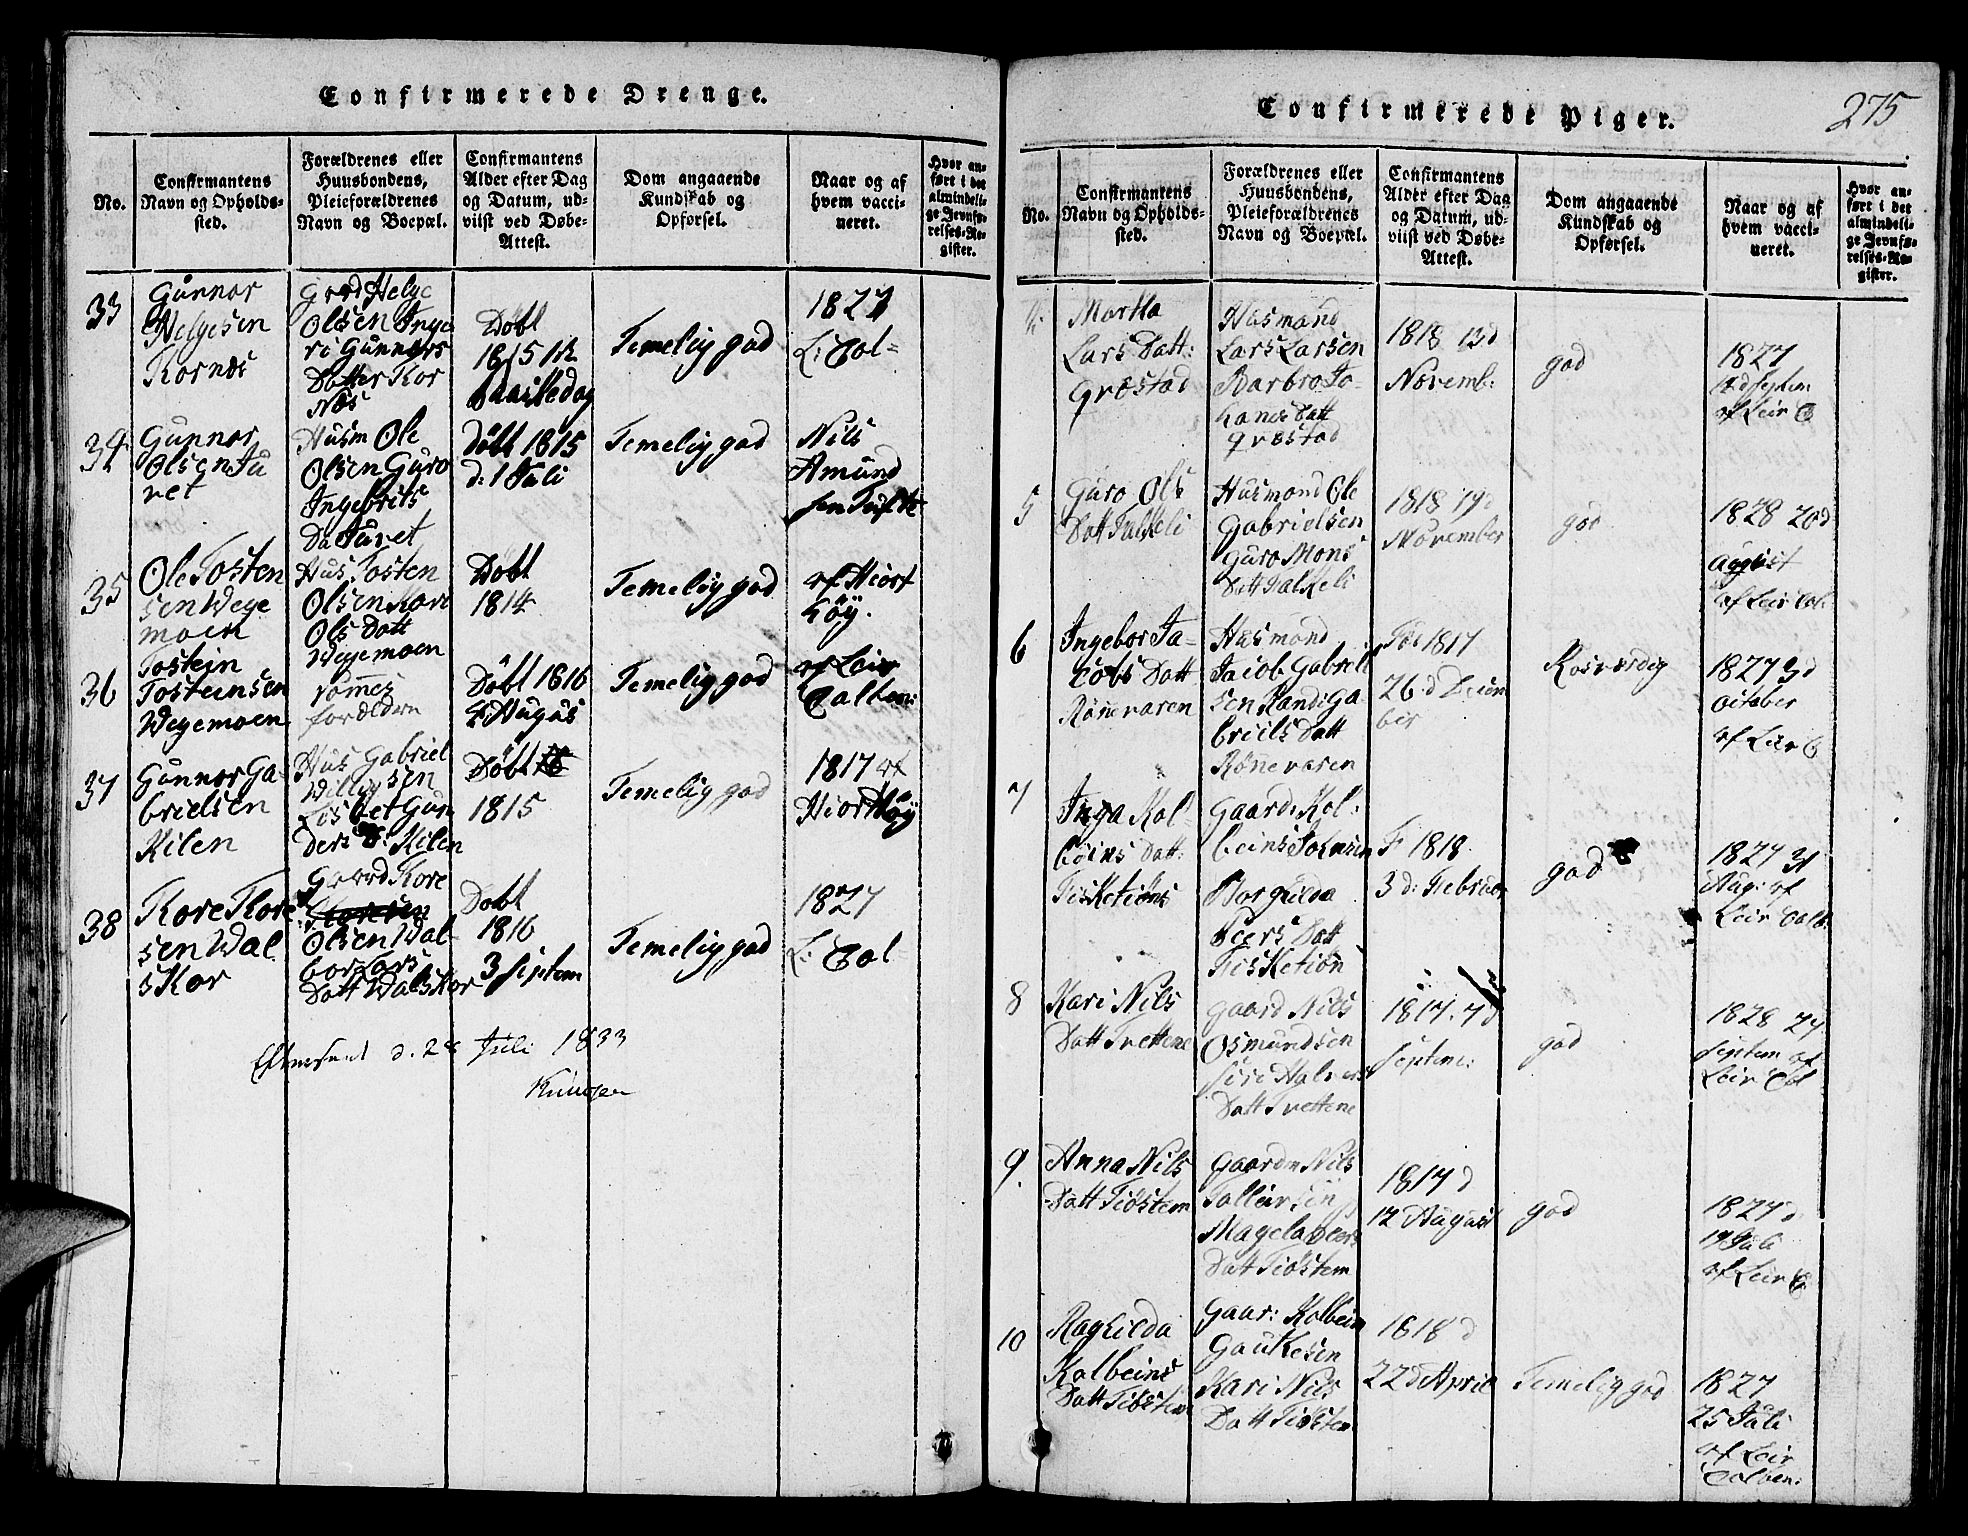 Confirmerede Drenge.
No.
Confirmantens
Navn og Opholds-
sted.
Forældrenes eller
Huusbondens,
Pleieforældrenes
Navn og Boepæl.
Confirmantens
Alder efter Dag
og Datum, ud-
viist ved Døbe-
Attest.
Dom angaaende
Kundskab og
Opførsel.
Naar og af
hvem vacci-
neret.
Hvor an-
ført i det
almindeli-
ge Jevnfø-
relses-Re-
gister.
33
Gunnar
Helgesen
Kornæs
Helge
Olsen Inge
ri Gunnars
Datter Kor
Næs
Døbt
1815
Temelig god
1827
L: Col-
34
Gunnar
Olsen Tu
vet
Husm Ole
Olsen Guro
Ingebrits
Da Tuvet
Døbt 1815
d: 1 Juli
Temelig god
Nils
Amund
sen Tufte
35
Ole Tosten
sen Wege
moen
Hus Tosten
Olsen Kari
Ols Datt
Wegemoen
Døbt
1814
Temelig god
af Hiort
høy.
36
Tostein
Tosteinsen
Wegemoen
forældre
Døbt 1816
4 Augus
Temelig god
af Leir
Colben:
37
Gunnar Ga-
brielsen
Kilen
Hus Gabriel
Willigsen
Lisbet Gun
ders D: Kilen
Døbt
1815
Temelig god
1817 af
Hiorthøy
38
Tore Tore
sen Wal
skar
Gaard Tore
Olsen Wal-
bor Lars
Datt Walskar
Døbt
1816
3 Septem
Temelig god
1827
L: Col-
d. 28 Juli 1833
Knudsen
Confirmerede Piger.
275
No.
Confirmantens
Navn og Opholds-
sted.
Forældrenes eller
Huusbondens,
Pleieforældrenes
Navn og Boepæl.
Confirmantens
Alder efter Dag
og Datum, ud-
viist ved Døbe-
Attest.
Dom angaaende
Kundskab og
Opførsel.
Naar og af
hvem vacci-
neret.
Hvor an-
ført i det
almindeli-
ge Jevnfø-
relses-Re-
gister.
4
Martha
Lars Datt:
Græstad
Husmand
Lars Larsen
Barbro Jo-
hanes Datt
Græstad
1818 13d
Novemb:
god
1827
12 d septem
af Leir C
5
Guro Ols
Datt Falkeli
Husmand Ole
Gabrielsen
Guro Mons
Datt Falkeli
1818 19d
November
god
1828 20d
august
af Leir Col:
6
Ingebor Ja-
cobs Datt
Rønevaren
Husmand
Jacob Gabriel
sen Randi Ga-
briels Datt
Rønevaren
1817
26:d Decem
ber
Rosværdig
1827 3d
october
af Leir C
7
Inga Kol-
beins Datt:
Fisketiøn
Gaard: Kol:
beins
Borgilda
Peers Datt
Fisketiøn
F 1818
3 d: Februar
god
1827 31
Aug: af
Leir Colb:
8
Kari Nils
Datt Trettene
Gaard Nils
Osmundsen
Siri Halvers
Datt Trettene
1817. 7d
Septem:
god
1828 24
Septem af
Leir Col
9.
Anna Nils
Datt Tiøstem
Gaardm Nils
Tollevsen
Magela Peers
Datt Tiøstem
1817 d
12 August
god
1827 d
19 Juli
af Leir C
10
Raghilda
Kolbeins
Datt Tiøstem
Gaar: Kolbein
Gaukesen
Kari Nils
Datt Tiøstem
1818 d
22 d April
Temelig god
1827
25 Juli
af Leir
Colben: